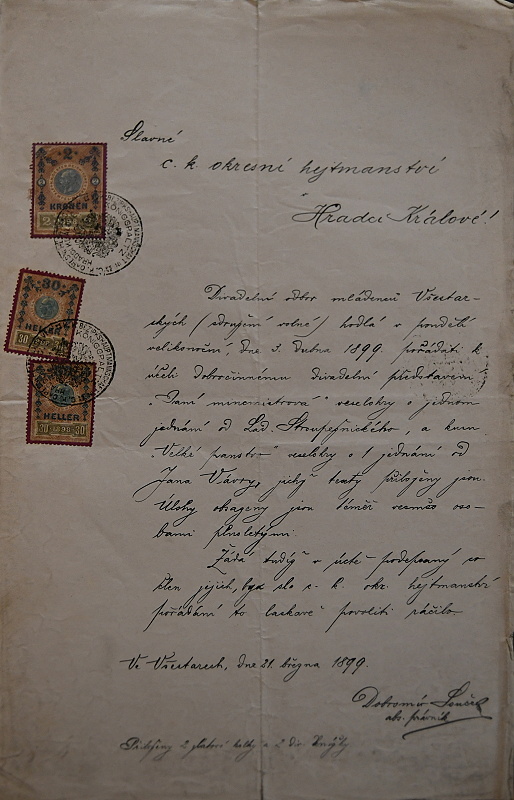 Slavné
c. k. okresní hejtmanství
v
Hradci Králové!
Divadelní odbor mládenců Všestar-
ských (sdružení volné) hodlá v pondělí
velikonoční, dne 3. dubna 1899. pořádati k
účeli dobročinnému divadelní představení
„Paní mincmistrová" veselohry o jednom
jednání od Lad. Stroupežnického, a kum
„Velké panstvo" veselohry o 1 jednání od
Jana Vávry, jichž texty přiloženy jsou.
Úlohy obsazeny jsou téměř vesměs oso-
bami plnoletými.
Žádá tudíž v úctě podepsaný co
člen jejich, by sl. c. k. okr. hejtmanství
pořádání to laskavě povoliti ráčilo.
Ve Všestarech, dne 21. března 1899.
Dobromír
abs. právník
Přiloženy 2 kolky a 2 div. knížky
2
KRONEN
30
HELLER
30
HELLER
30 1898 30
KÖNIGGRAETZ